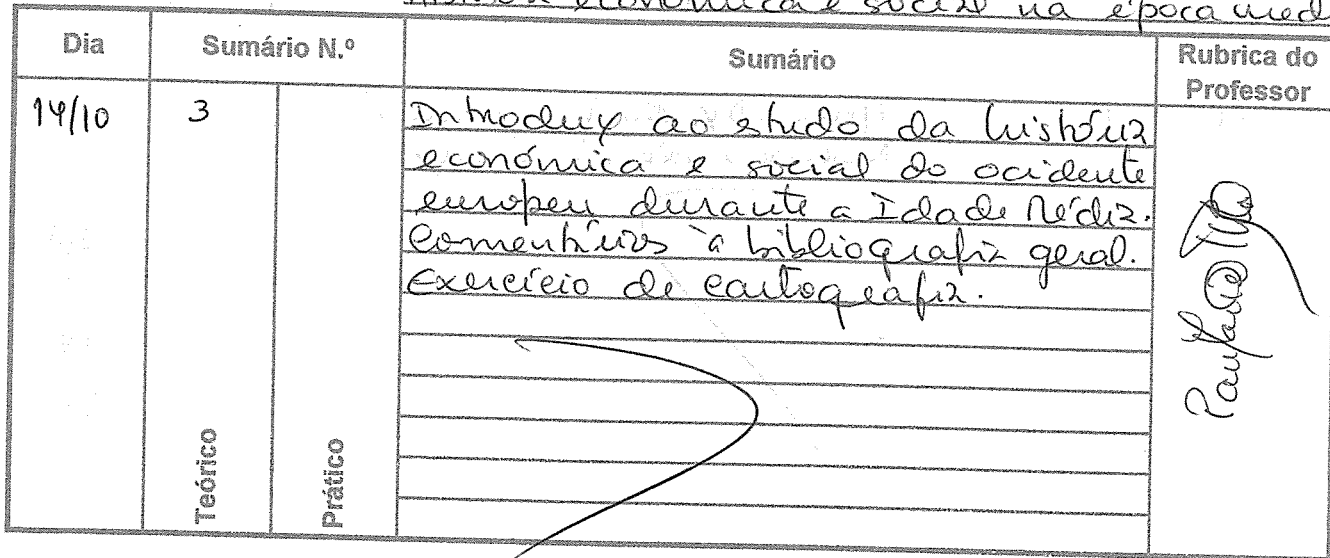 económica e social na época med
Dia Sumário N.º Sumário Rubrica do Professor
14/10 3 Introduç ao estudo da história
económica e social do ocidente
europeu durante a Idade Média.
Comentários à bibliografia geral.
Exercício de cartografia.
Teórico Prático